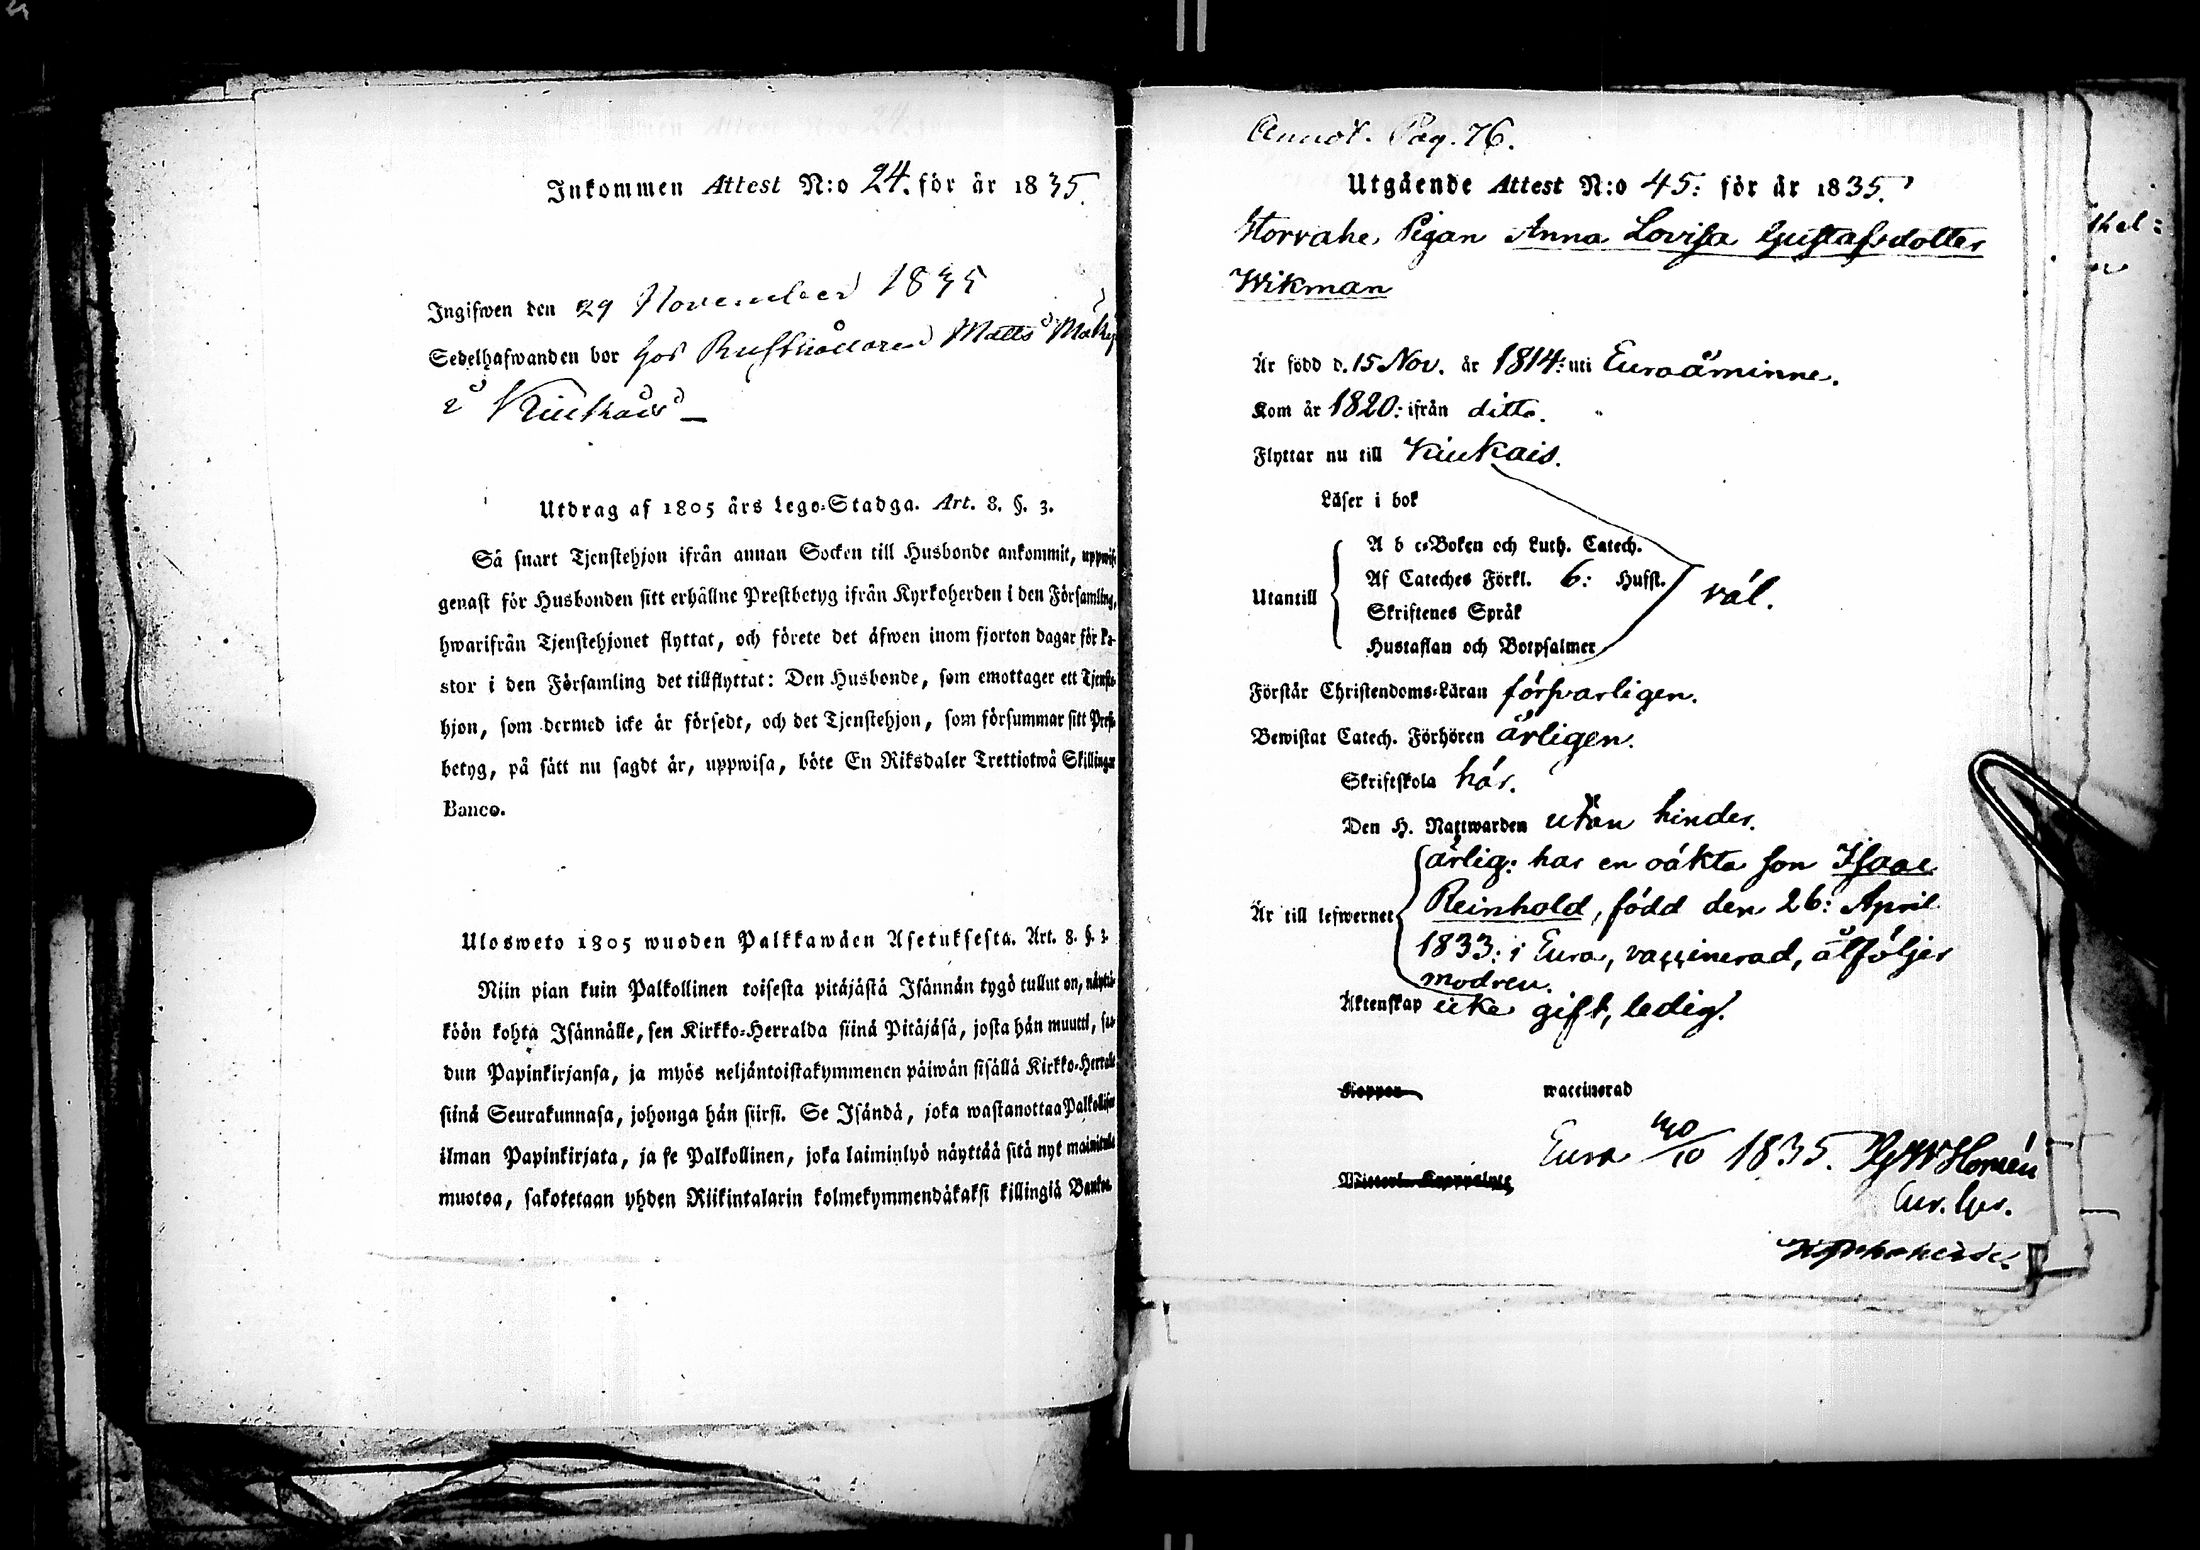 Inkommen Attest N:o 24. för år 1835.
Ingifwen den 29 November 1835
Sedelhafwanden bor hos Rusthållaren Matts
i Kiukais
Utdrag af 1805 års Lego-Stadga. Art. 8. §. 3.
Så snart Tjenstehjon ifrån annan Socken till Husbonde ankommit, uppwise
genast för Husbonden sitt erhållne Prestbetyg ifrån Kyrkoherden i den Församling,
hwarifrån Tjenstehjonet flyttat, och förete det äfwen inom fjorton dagar för Pa-
stor i den Församling det tillflyttat: Den Husbonde, som emottager ett Tjenste-
hjon, som dermed icke är försedt, och det Tjenstehjon, som försummar sitt Prest-
betyg, på sätt nu sagdt är, uppwisa, böte En Riksdaler Trettiotwå Skillingar
Banco.
Ulosweto 1805 wuoden Palkkawäen Asetuksesta. Art. 8. §. 3.
Niin pian kuin Palkollinen toisesta pitäjästä Isännän tygö tullut on, näyttä-
köön kohta Isännälle, sen Kirkko-Herralda siinä Pitäjäsä, josta hän muutti, saa-
dun Papinkirjansa, ja myös neljäntoistakymmenen päiwän sisällä Kirkko-Herralle
siinä Seurakunnasa, johonga hän siirsi. Se Isändä, joka wastanottaa Palkollisen
ilman Papinkirjata, ja se Palkollinen, joka laiminlyö näyttää sitä nyt mainitulla
muotoa, sakotetaan yhden Riikintalarin kolmekymmendäkaksi killingiä Bankos.
Annot. Pag. 76.
Utgående Attest N:o 45: för år 1835.
Storrahe, Pigan Anna Lovisa Gustafsdotter
Wikman
Är född d. 15 Nov. år 1814: uti Euraåminne.
Kom år 1820: ifrån ditto.
Flyttar nu till Kiukais.
Läser i bok
A b c-Boken och Luth. Catech.
Af Cateches Förkl. 6: Hufst.
Utantill
väl.
Skriftenes Språk
Hustaflan och Botpsalmer
Förstår Christendoms-Läran försvarligen.
Bewistat Catech. Förhören årligen.
Skriftskola här.
Den H. Nattwarden utan hinder.
ärlig: har en oäkta son Isaac
Är till lefwernet Reinhold, född den 26: April
1833: i Eura, vaccinerad, åtföljer
modren.
Äktenskap icke gift, ledig.
Koppor waccinerad
Eura 30/10 1835.
Kyrkoherde.